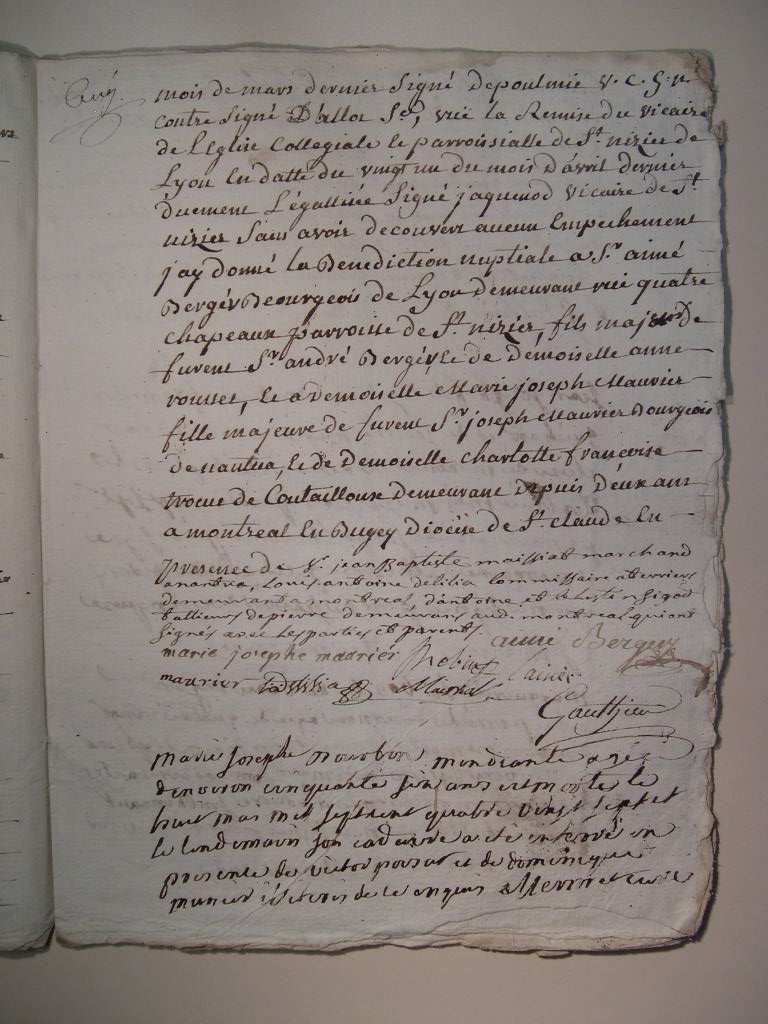 mois de mars dernier signé depoulmie v. c. g. n.
contre signé Dallot S.re, vue la Remise du vicaire
de l'Eglise Collegiale le parroissialle de St. nizier de
Lyon En datte du vingt un du mois d'avril dernier
duement Légallisée signé jaquemod vicaire de St.
nizier sans avoir decouvert aucun Empechement
jay donné la Benediction nuptiale a Sr. aimé
Bergér Beourgeois de Lyon demeurant rüe quatre
chapeaux parroisse de St. nizier, fils majeur de
furent Sr. andré Bergér, le de Demoiselle anne
rousset, le a Demoiselle Marie joseph Maurier
fille majeure de furent Sr. joseph Maurier Bourgeois
de nantua, le de Demoiselle charlotte françoise
trocu de Coutailloux Demeurant depuis deux ans
a montreal En Bugey Dioceze de St. claude En
presence de Sr. jean Baptiste maissiat marchand
a nantua, Louis antoine delilia Commissaire a terriers
demeurant a montreal, d'antoine et Celestin sigod
tallieurs de pierre demeurans aud. montreal qui ont
signés avec les parties et parents.
aimé Berger
marie josephe maurier Robin L'ainée
maurier delilia Maissiat
Gauthier
marie Josephe mendiante agée
denviron cinquante six ans est morte le
huit mai mil sept cent quatre vingt sept et
le lendemain son cadavre a été enterré en
presence de victor ponsat et de dominique
munier illiteres de ce enquis Mermet curé